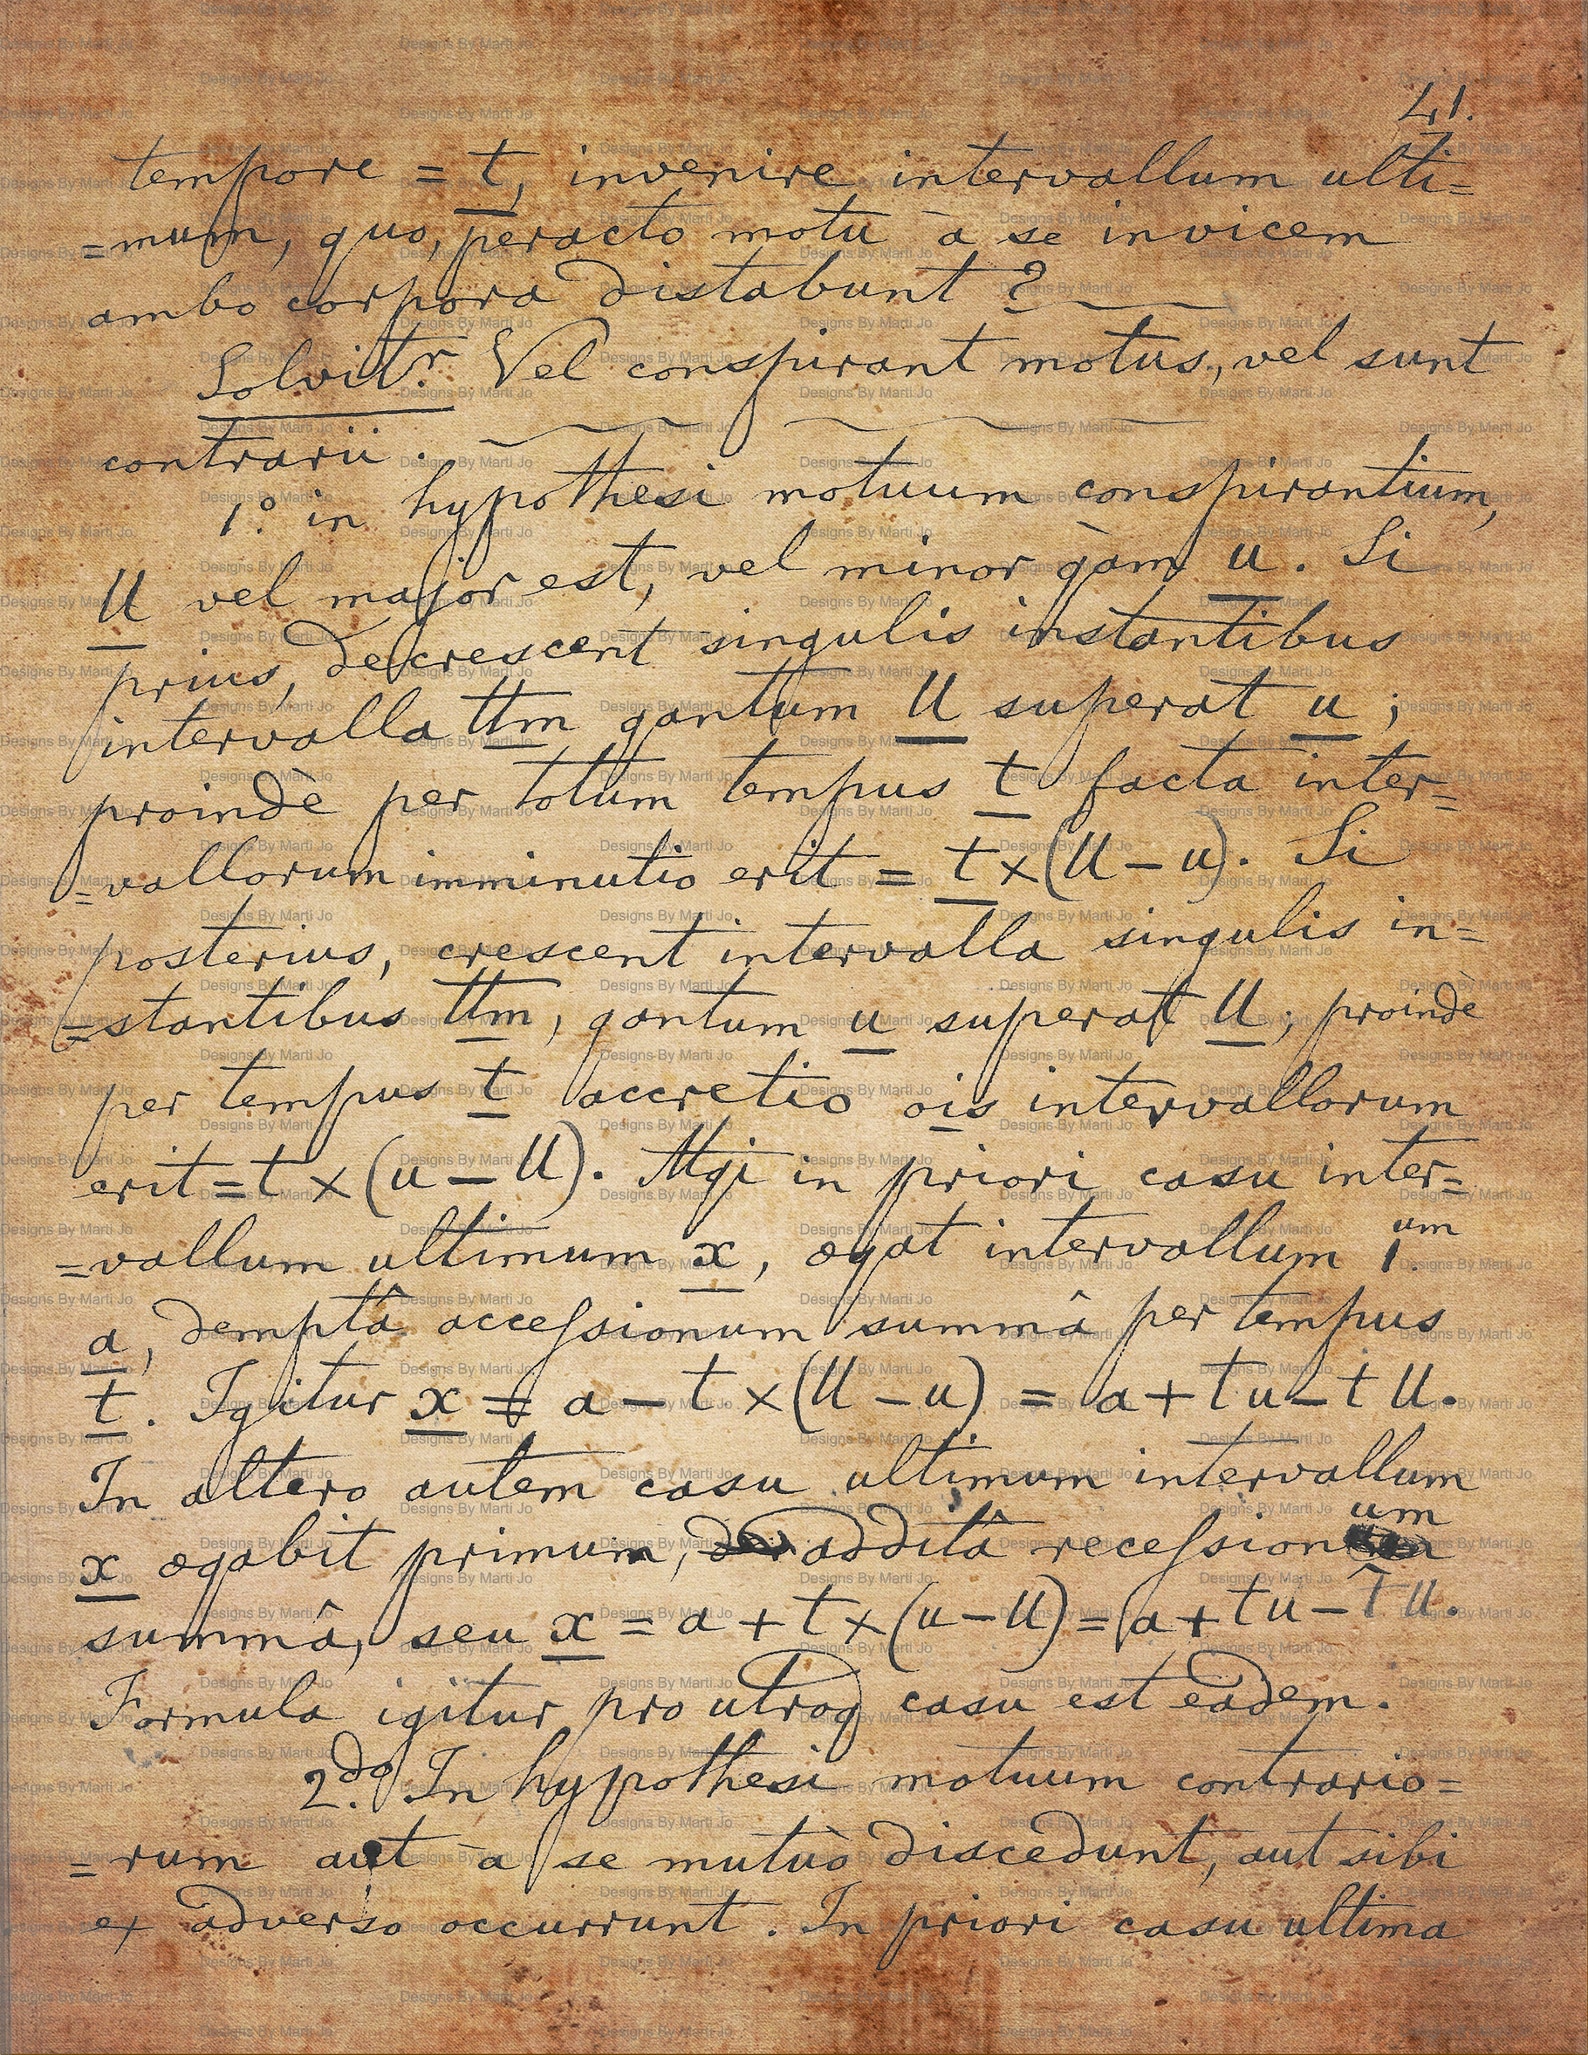 41.
tempore = t, invenire intervallum ulti=
=mum, quo, peracto motu à se invicem
ambo corpora distabunt ?
Solvit.r Vel conspirant motus, vel sunt
contrarii.
1.o in hypothesi motuum conspirantium,
U vel major est, vel minor qàm u. Si
prius, decrescent singulis instantibus
intervalla ttm qantum U superat u ;
proindè per totum tempus t facta inter=
=vallorum imminutio erit = t x (U - u). Si
posterius, crescent intervalla singulis in=
=stantibus ttm, qantum u superat U, proindè
per tempus t accretio ois intervallorum
erit = t x (u - U). Itaqi in priori casu inter=
=vallum ultimum x, æqat intervallum 1.um
a, demptâ accessionum summâ per tempus
t. Igitur x = a - t x (U - u) = a + t u - t U.
In altero autem casu ultimum intervallum
x æqabit primum, additâ recessionum
summâ, seu x = a + t x (u - U) = a + t u - t U.
Formula igitur pro utroq casu est eadem.
2.do In hypothesi motuum contrario=
=rum aut à se mutuò discedunt, aut sibi
ex adverso occurrunt. In priori casu ultima
Designs By Marti Jo